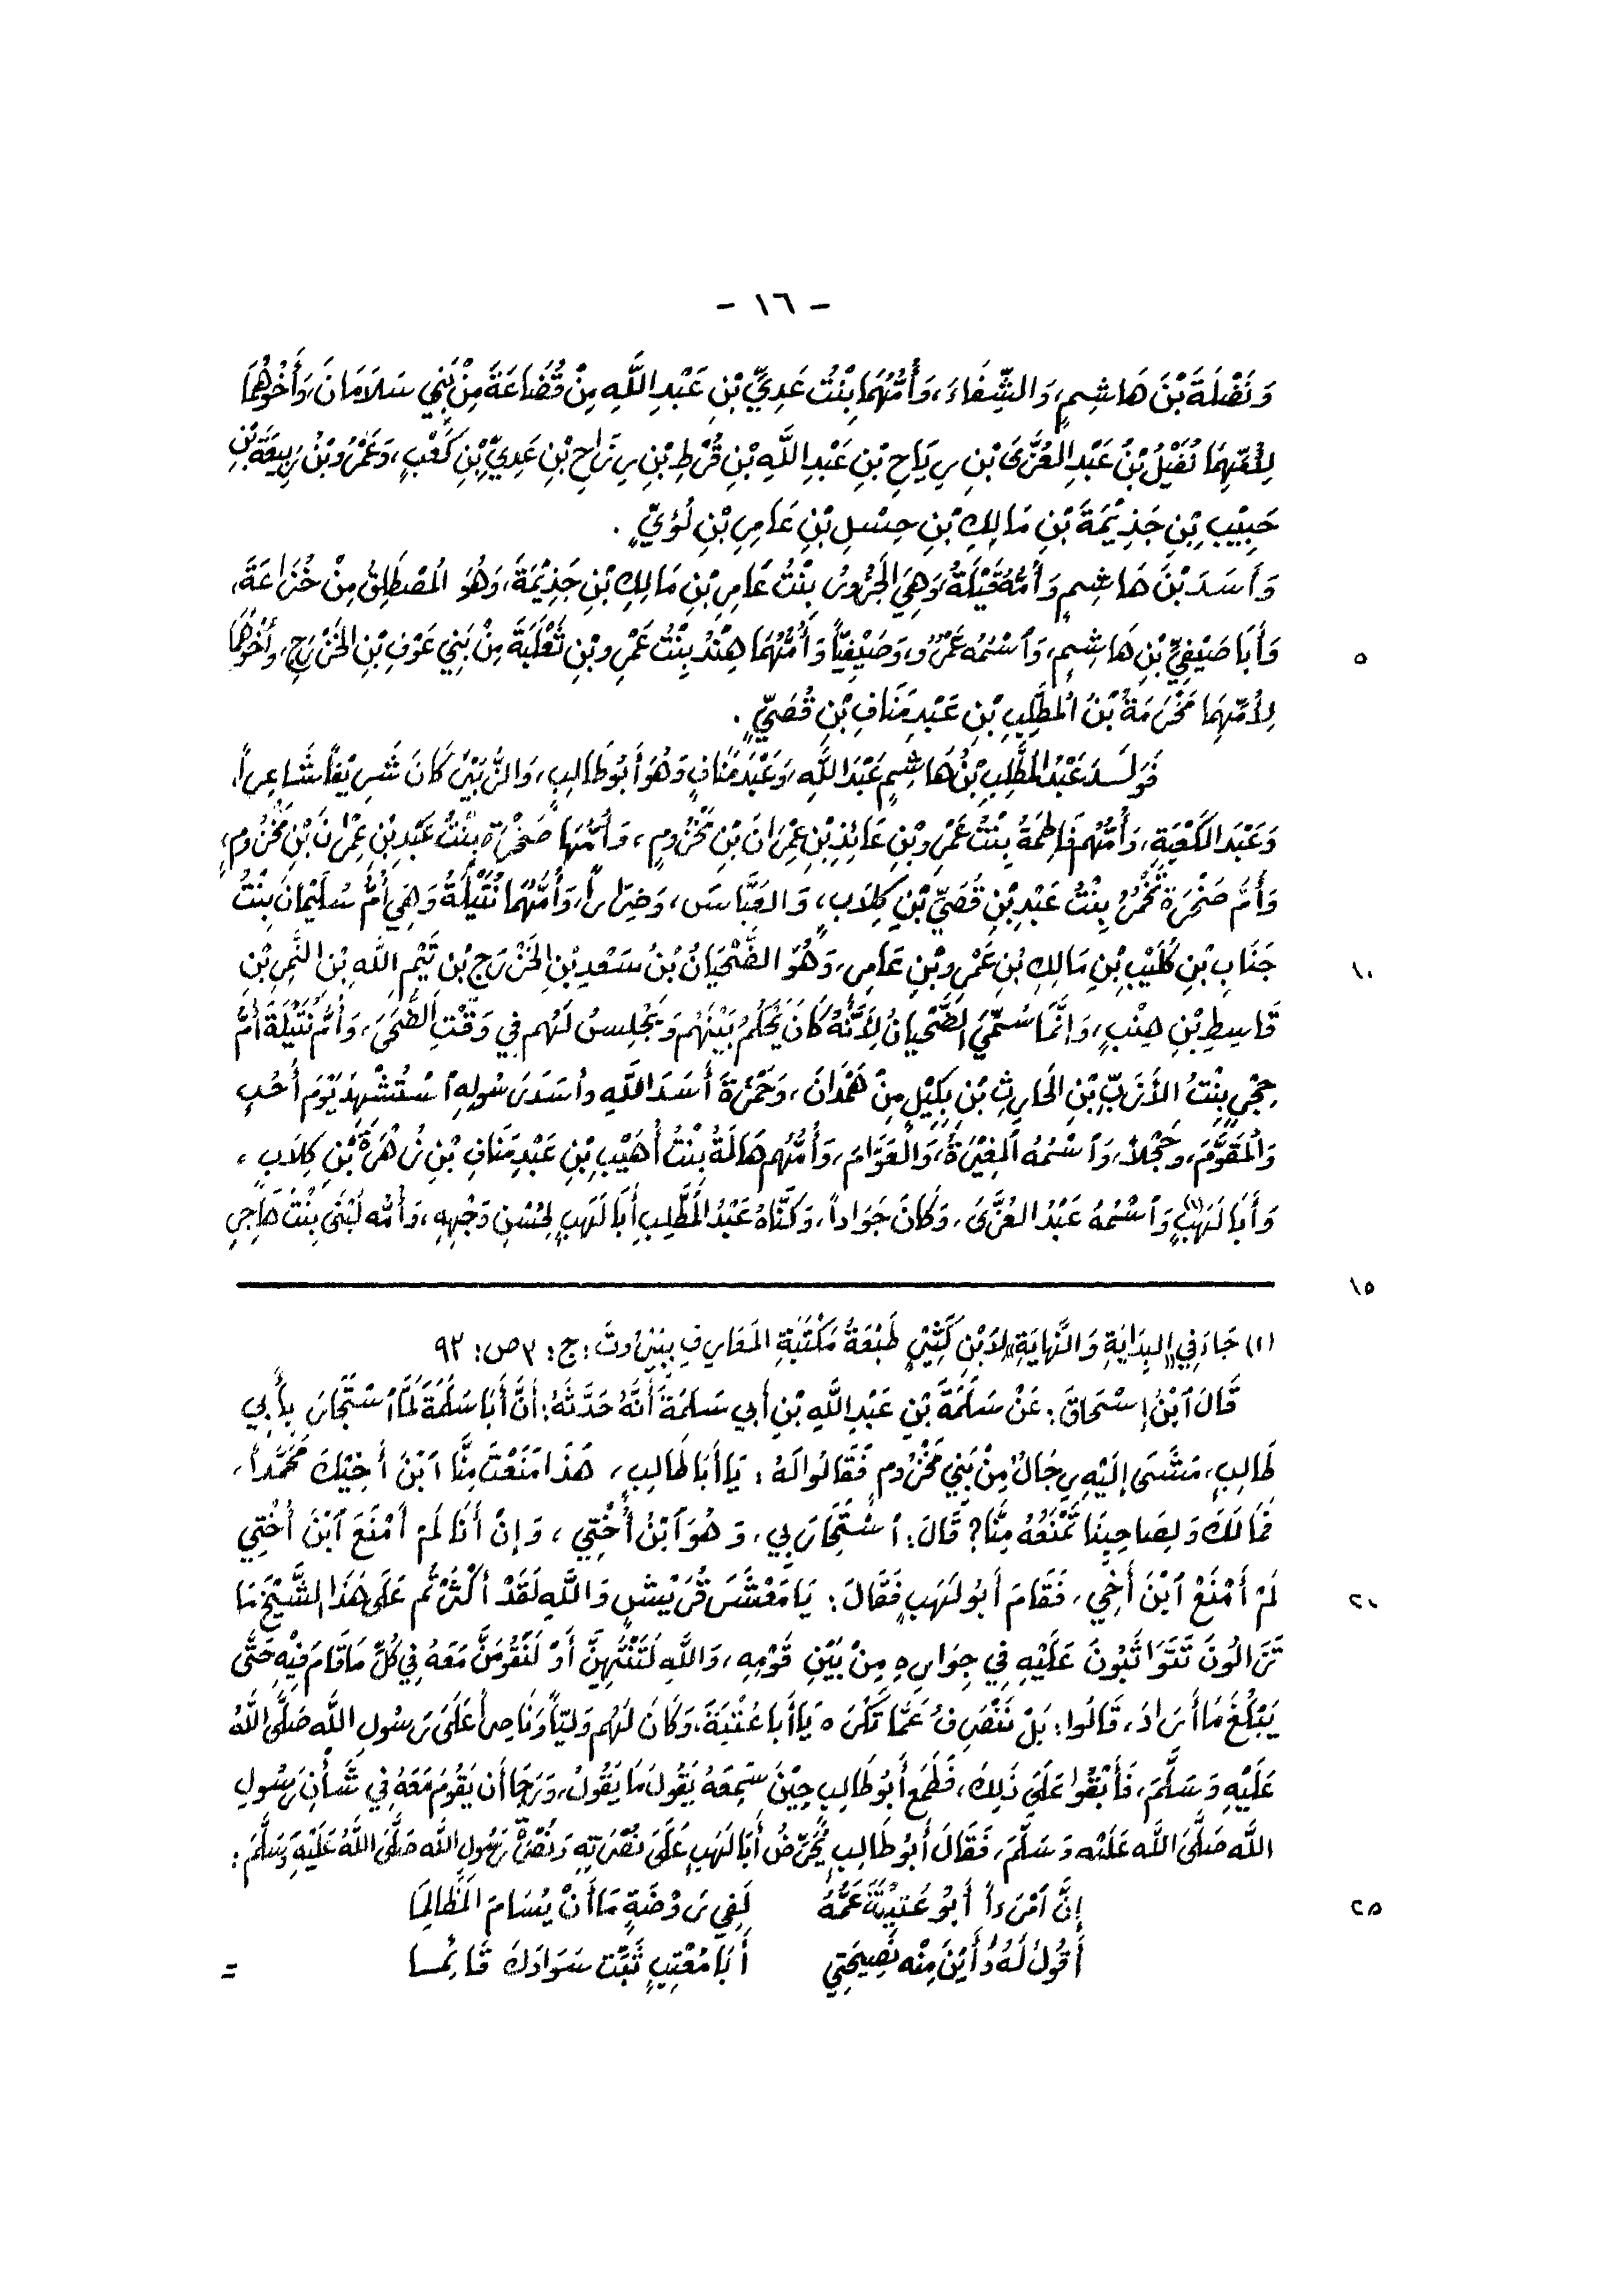 - ١٦ -
وَنَضْلَةَ بْنَ هَاشِمٍ، وَالشِّفَاءَ، وَأُمُّهُمَا بِنْتُ عَدِيِّ بْنِ عَبْدِ اللَّهِ مِنْ قُضَاعَةَ مِنْ بَنِي سَلَامَانَ، وَأَخُوهُمَا
لِأُمِّهِمَا نُفَيْلُ بْنُ عَبْدِ العُزَّى بْنِ رِيَاحِ بْنِ عَبْدِ اللَّهِ بْنِ قُرْطِ بْنِ رِزَاحِ بْنِ عَدِيِّ بْنِ كَعْبٍ، وَعَمْرُو بْنُ رَبِيعَةَ بْنِ
حَبِيْبِ بْنِ جَذِيْمَةَ بْنِ مَالِكِ بْنِ حِسْلِ بْنِ عَامِرِ بْنِ لُؤَيٍّ .
وَأَسَدَ بْنَ هَاشِمٍ وَأُمُّهُ قَيْلَةُ، وَهِيَ الجَزُورُ بِنْتُ عَامِرِ بْنِ مَالِكِ بْنِ جَذِيْمَةَ، وَهُوَ المُصْطَلِقُ مِنْ خُزَاعَةَ،
٥ وَأَبَا صَيْفِيِّ بْنِ هَاشِمٍ، وَٱسْمُهُ عَمْرٌو، وَصَيْفِيّاً وَأُمُّهُمَا هِنْدُ بِنْتُ عَمْرِو بْنِ ثَعْلَبَةَ مِنْ بَنِي عَوْفِ بْنِ الخَزْرَجِ، وَأَخُوهُمَا
لِأُمِّهِمَا مَخْرَمَةُ بْنُ المُطَّلِبِ بْنِ عَبْدِ مَنَافِ بْنِ قُصَيٍّ .
فَوَلَدَ عَبْدُ المُطَّلِبِ بْنُ هَاشِمٍ عَبْدَ اللَّهِ، وَعَبْدَ مَنَافٍ وَهُوَ أَبُو طَالِبٍ، وَالزُّبَيْرَ كَانَ شَرِيْفاً شَاعِراً،
وَعَبْدَ الكَعْبَةِ، وَأُمُّهُم فَاطِمَةُ بِنْتُ عَمْرِو بْنِ عَائِذِ بْنِ عِمْرَانَ بْنِ مَخْزُومٍ، وَأُمُّهَا صَخْرَةُ بِنْتُ عَبْدِ بْنِ عِمْرَانَ بْنِ مَخْزُومٍ،
وَأُمُّ صَخْرَةَ تَخْمُرُ بِنْتُ عَبْدِ بْنِ قُصَيِّ بْنِ كِلَابٍ، وَالعَبَّاسَ، وَضِرَاراً، وَأُمُّهُمَا نُتَيْلَةُ وَهِيَ أُمُّ سُلَيْمَانَ بِنْتُ
١٠ جَنَابِ بْنِ كُلَيْبِ بْنِ مَالِكِ بْنِ عَمْرِو بْنِ عَامِرٍ، وَهُوَ الضَّحْيَانُ بْنُ سَعْدِ بْنِ الخَزْرَجِ بْنِ تَيْمِ اللَّهِ بْنِ النَّمِرِ بْنِ
قَاسِطِ بْنِ هِنْبٍ، وَإِنَّمَا سُمِّيَ الضَّحْيَانُ لِأَنَّهُ كَانَ يَحْكُمُ بَيْنَهُم وَيَجْلِسُ لَهُم فِي وَقْتِ الضُّحَى، وَأُمُّ نُتَيْلَةَ أُمُّ
حِجْرٍ بِنْتُ الأَزَبِّ بْنِ الحَارِثِ بْنِ بَكِيْلٍ مِنْ هَمْدَانَ، وَحَمْزَةَ أَسَدَ اللَّهِ وأَسَدَ رَسُولِهِ ٱسْتُشْهِدَ يَوْمَ أُحُدٍ
وَالمُقَوَّمَ، وَحَجْلاً، وَٱسْمُهُ المُغِيْرَةُ، وَالعَوَّامَ، وَأُمُّهُم هَالَةُ بِنْتُ أُهَيْبِ بْنِ عَبْدِ مَنَافِ بْنِ زُهْرَةَ بْنِ كِلَابٍ،
وَأَبَا لَهَبٍ(١) وَٱسْمُهُ عَبْدُ العُزَّى، وَكَانَ جَوَاداً، وَكَنَّاهُ عَبْدُ المُطَّلِبِ أَبَا لَهَبٍ لِحُسْنِ وَجْهِهِ، وَأُمُّه لُبْنَى بِنْتُ هَاجِرِ
١٥
(١) جَاءَ فِي «البِدَايَةِ وَالنِّهَايَةِ» لِابْنِ كَثِيْرٍ طَبْعَةُ مَكْتَبَةِ المَعَارِفِ بِبَيْرُوتَ : ج : ٣ ص : ٩٣
قَالَ ٱبْنُ إِسْحَاقَ : عَنْ سَلَمَةَ بْنِ عَبْدِ اللَّهِ بْنِ أَبِي سَلَمَةَ أَنَّهُ حَدَّثَهُ : أَنَّ أَبَا سَلَمَةَ لَمَّا ٱسْتَجَارَ بِأَبِي
طَالِبٍ، مَشَى إِلَيْهِ رِجَالٌ مِنْ بَنِي مَخْزُومٍ فَقَالُوا لَهُ : يَا أَبَا طَالِبٍ، هَذَا مَنَعْتَ مِنَّا ٱبْنَ أَخِيْكَ مُحَمَّداً،
فَمَا لَكَ وَلِصَاحِبِنَا تَمْنَعُهُ مِنَّا؟ قَالَ : ٱسْتَجَارَ بِي، وَهُوَ ٱبْنُ أُخْتِي، وَإِنْ أَنَا لَمْ أَمْنَعَ ٱبْنَ أُخْتِي
٢٠ لَمْ أَمْنَعْ ٱبْنَ أَخِي، فَقَامَ أَبُو لَهَبٍ فَقَالَ : يَا مَعْشَرَ قُرَيْشٍ وَاللَّهِ لَقَدْ أَكْثَرْتُم عَلَى هَذَا الشَّيْخِ مَا
تَزَالُونَ تَتَوَاثَبُونَ عَلَيْهِ فِي جِوَارِهِ مِنْ بَيْنِ قَوْمِهِ، وَاللَّهِ لَتَنْتَهِنَّ أَوْ لَنَقُومَنَّ مَعَهُ فِي كُلِّ مَا قَامَ فِيْهِ حَتَّى
يَبْلُغَ مَا أَرَادَ، قَالُوا : بَلْ نَنْصَرِفُ عَمَّا تَكْرَهُ يَا أَبَا عُتْبَةَ، وَكَانَ لَهُم وَلِيّاً وَنَاصِراً عَلَى رَسُولِ اللَّه صَلَّى اللَّهُ
عَلَيْهِ وَسَلَّمَ، فَأَبْقُوا عَلَى ذَلِكَ، فَطَمِعَ أَبُو طَالِبٍ حِيْنَ سَمِعَهُ يَقُولُ مَا يَقُولُ، وَرَجَا أَن يَقُومَ مَعَهُ فِي شَأْنِ رَسُولِ
اللَّه صَلَّى اللَّه عَلَيْه وَسَلَّمَ، فَقَالَ أَبُو طَالِبٍ يُحَرِّضُ أَبَا لَهَبٍ عَلَى نُصْرَتِهِ وَنُصْرَةِ رَسُولِ اللَّه صَلَّى اللَّهُ عَلَيْهِ وَسَلَّمَ :
٢٥ إِنَّ ٱمْرَءاً أَبُو عُتَيْبَةَ عَمُّهُ لَفِي رَوْضَةٍ مَا أَنْ يُسَامَ المَظَالِمَا
أَقُولُ لَهُ وَأَيْنَ مِنْه نَصِيحَتِي أَبَا مُعْتِبٍ ثَبِّت سَوَادَكَ قَائِمَا =